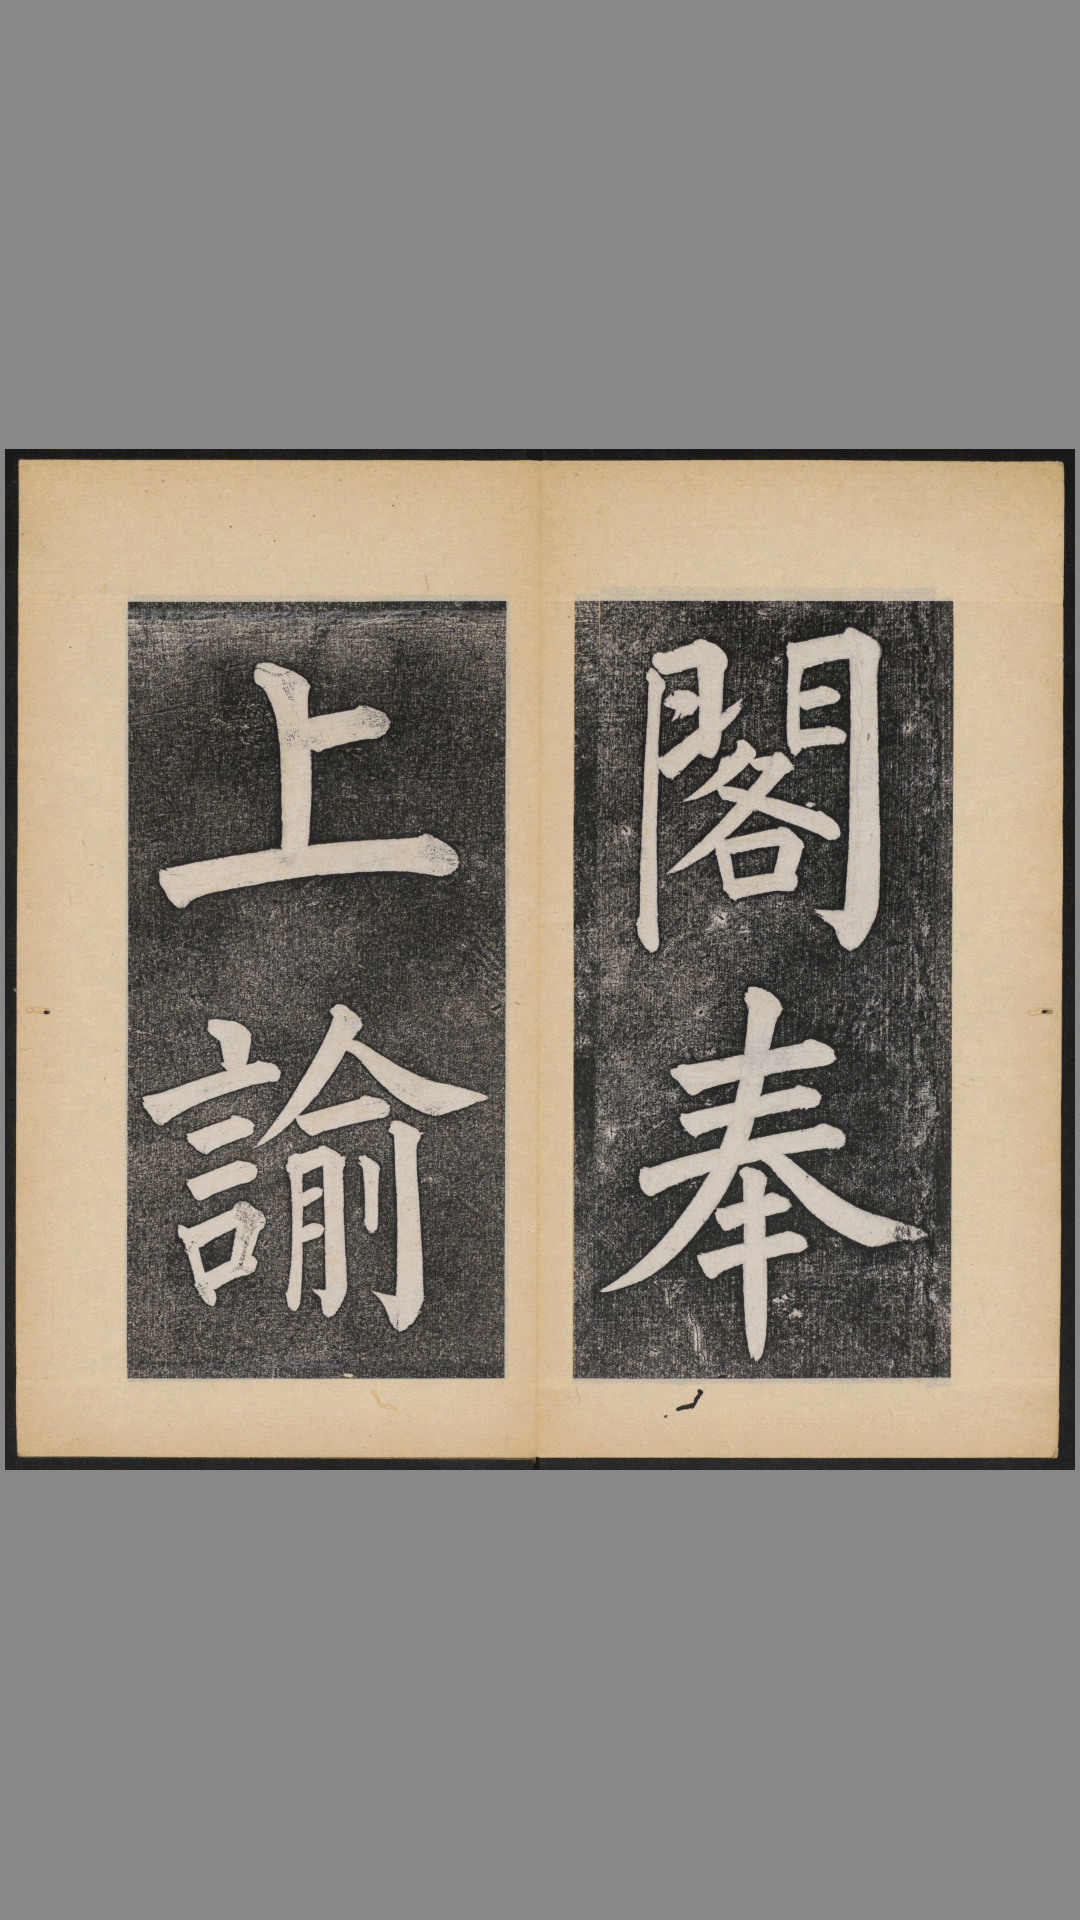 閣奉
上諭